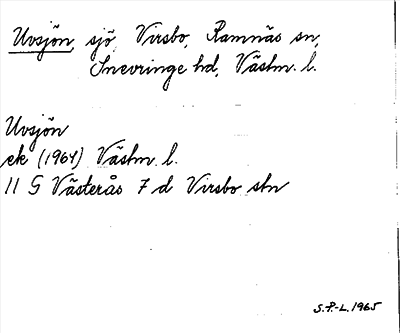 Uvsjön, sjö, Virsbo, Ramnäs sn,
Snevringe hd, Västm. l.
Uvsjön
ek (1964) Västm. l.
11 G Västerås 7 d Virsbo stn
S.P.-L. 1965